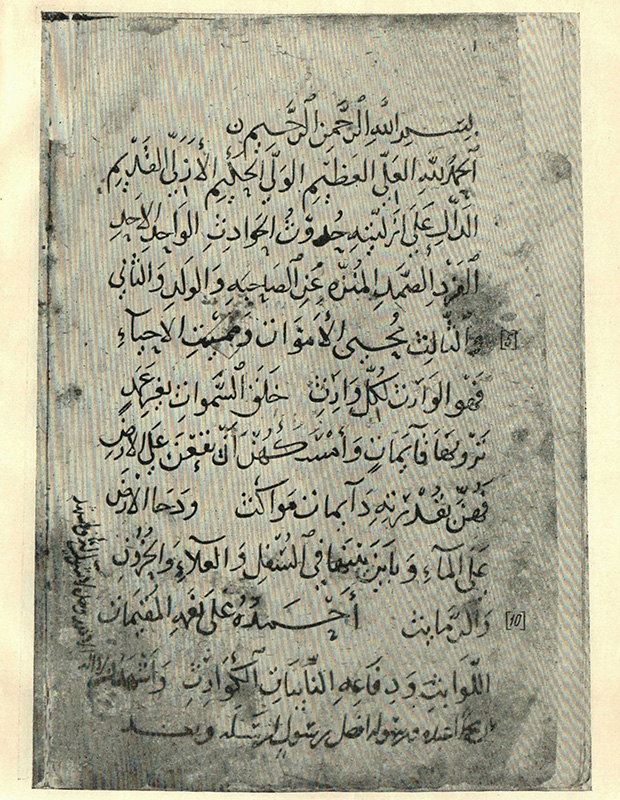 بِسْمِ اللَّهِ الرَّحْمَنِ الرَّحِيمِ
اَلحَمْدُ لِلَّهِ العَلِيِّ العَظِيمِ الوَلِيِّ الحَلِيمِ الأَزَلِيِّ القَدِيمِ
الدَّالِّ عَلَى أَزَلِيَّتِهِ حُدُوْثُ الحَوَادِثِ الوَاحِدِ الاَحَدِ
الفَرْدِ الصَّمَدِ المُنَزَّهِ عَنِ الصَاحِبَهِ وَالوَلَدِ وَالثَانِي
وَالثَّالِثِ مُحْيِي الأَمْوَاتِ وَمُمِيْتِ الاَحيَآءِ [5]
فَهُوَ الوَارِثُ لِكُلِّ وَارِثٍ خَلَقَ السَّمَوَاتِ بِغَيرِ عَمَدٍ
تَرَوْنَهَا قَايِمَاتٍ وَأَمْسَكَهُنَّ أَنْ يَقَعْنَ عَلَى الارضِ
فَهُنَّ بِقُدْرَتِهِ دَايِمَات مَوَاكث وَدَحَا الأَرْضَ
عَلَى المَآءِ وَبَايَنَ بَيْنَهَا فِي السُّفْلِ وَالعَلَاءِ وَالحُزُوْنِ
وَالدَّمَايِث أَحْمَدُهُ عَلَى نِعَمِهِ المُقِيْمَات [10]
اللَّوَابِثِ وَدِفَاعِهِ النَّايبَاتِ الكَوَارِثِ وَأَشْهَدُ ان
عبده ورسوله افضل رسول ارسله وبعد